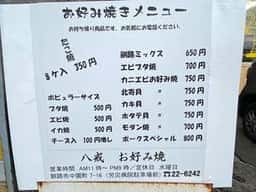 お好み焼きメニュー
お持ち帰り商品です、お気軽にお電話ください。
たこ焼
8ケ入 350円
ポピュラーサイズ
ブタ焼 500円
エビ焼 500円
イカ焼 500円
チーズ入 100円増し
釧路ミックス 650円
エビブタ焼 700円
カニエビお好み焼 750円
北寄貝 〃 750円
カキ貝 〃 750円
ホタテ貝 〃 750円
モダン焼 〃 700円
ポークスペシャル 800円
八戒 お好み焼
営業時間 AM11時~PM9時/定休日 水曜日
釧路市中園町7-16(労災病院駐車場前) ☎22-6242